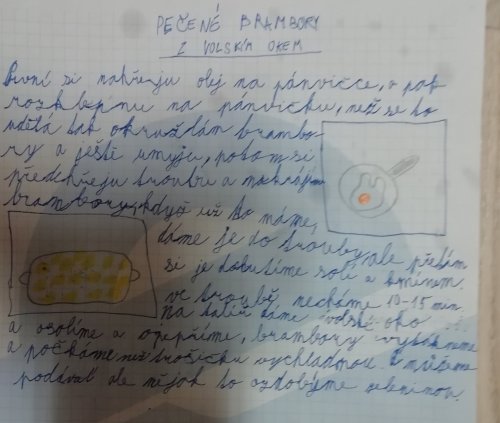 PEČENÉ BRAMBORY
Z VOLSKÍM OKEM
První si nahřeju olej na pánvičce, a pak
rozklepnu na pánvičku, než se to
udělá tak okruždám brambo-
ry a ještě umyju, potom si
předehřeju troubu a nakrájím
brambory, když už to máme,
dáme je do trouby, ale předtím
si je dobutíme solí a kmínem.
ve troubě, necháme 10-15 min
Na talíř dáme volské oko
a osolíme a opepříme, brambory vytáhneme
a počkáme než trošičku vychladnou. a můžeme
podávat ale nějak to ozdobíme zeleninou.